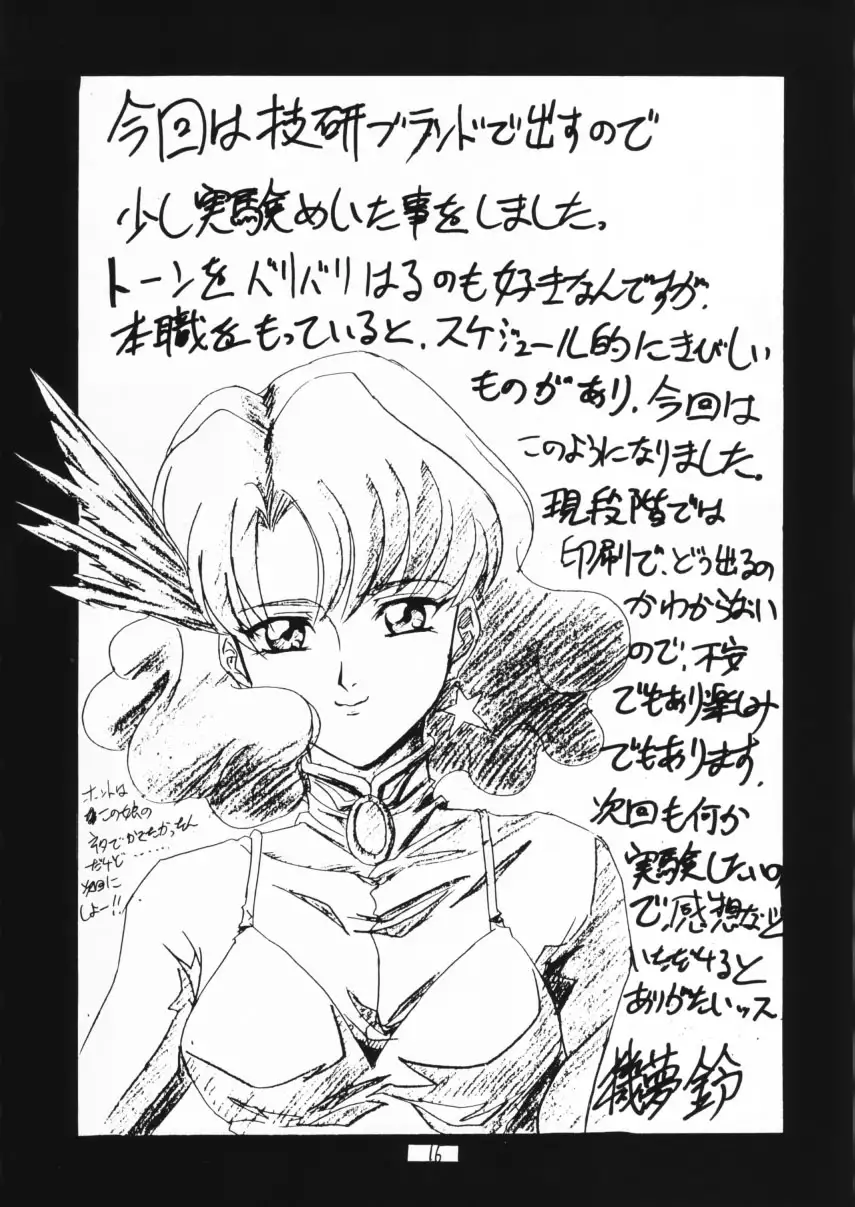 今回は技研ブランドで出すので
少し実験めいた事をしました。
トーンをバリバリはるのも好きなんですが、
本職をもっていると、スケジュール的にきびしい
ものがあり、今回は
このようになりました。
現段階では
印刷で、どう出るの
かわからない
ので、不安
でもあり楽しみ
でもあります。
次回も何か
実験したいの
で、感想など
いただけると
ありがたいッス
夢鈴
ホントは
この娘の
ネタでかきたかったん
だけど……
次回に
しよー!!
16